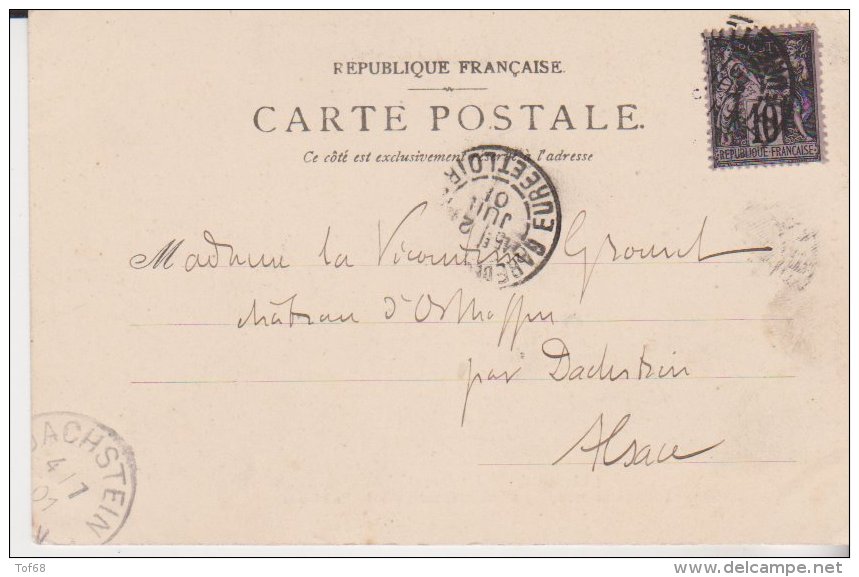 REPUBLIQUE FRANÇAISE
CARTE POSTALE.
Ce côté est exclusivement réservé à l'adresse
10
REPUBLIQUE FRANÇAISE
GARE DE
EURE ET LOIR
2
JUIL
01
Madame la Vicomtesse
château d'
par Dachstein
Alsace
DACHSTEIN
4/7
01
Tof68
www.delcampe.net